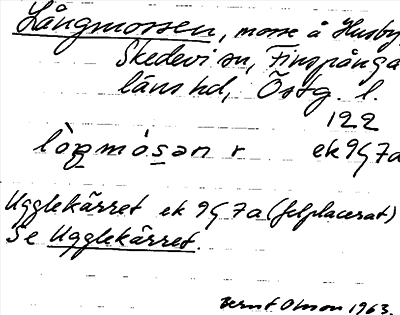 Långmossen, mosse å Husby,
Skedevi sn, Finspånga
läns hd, Östg. l.
122
lòŋmósən r ek 9G7a
Ugglekärret ek 9G7a (felplacerat)
Se Ugglekärret.
Bernt Olsson 1963.